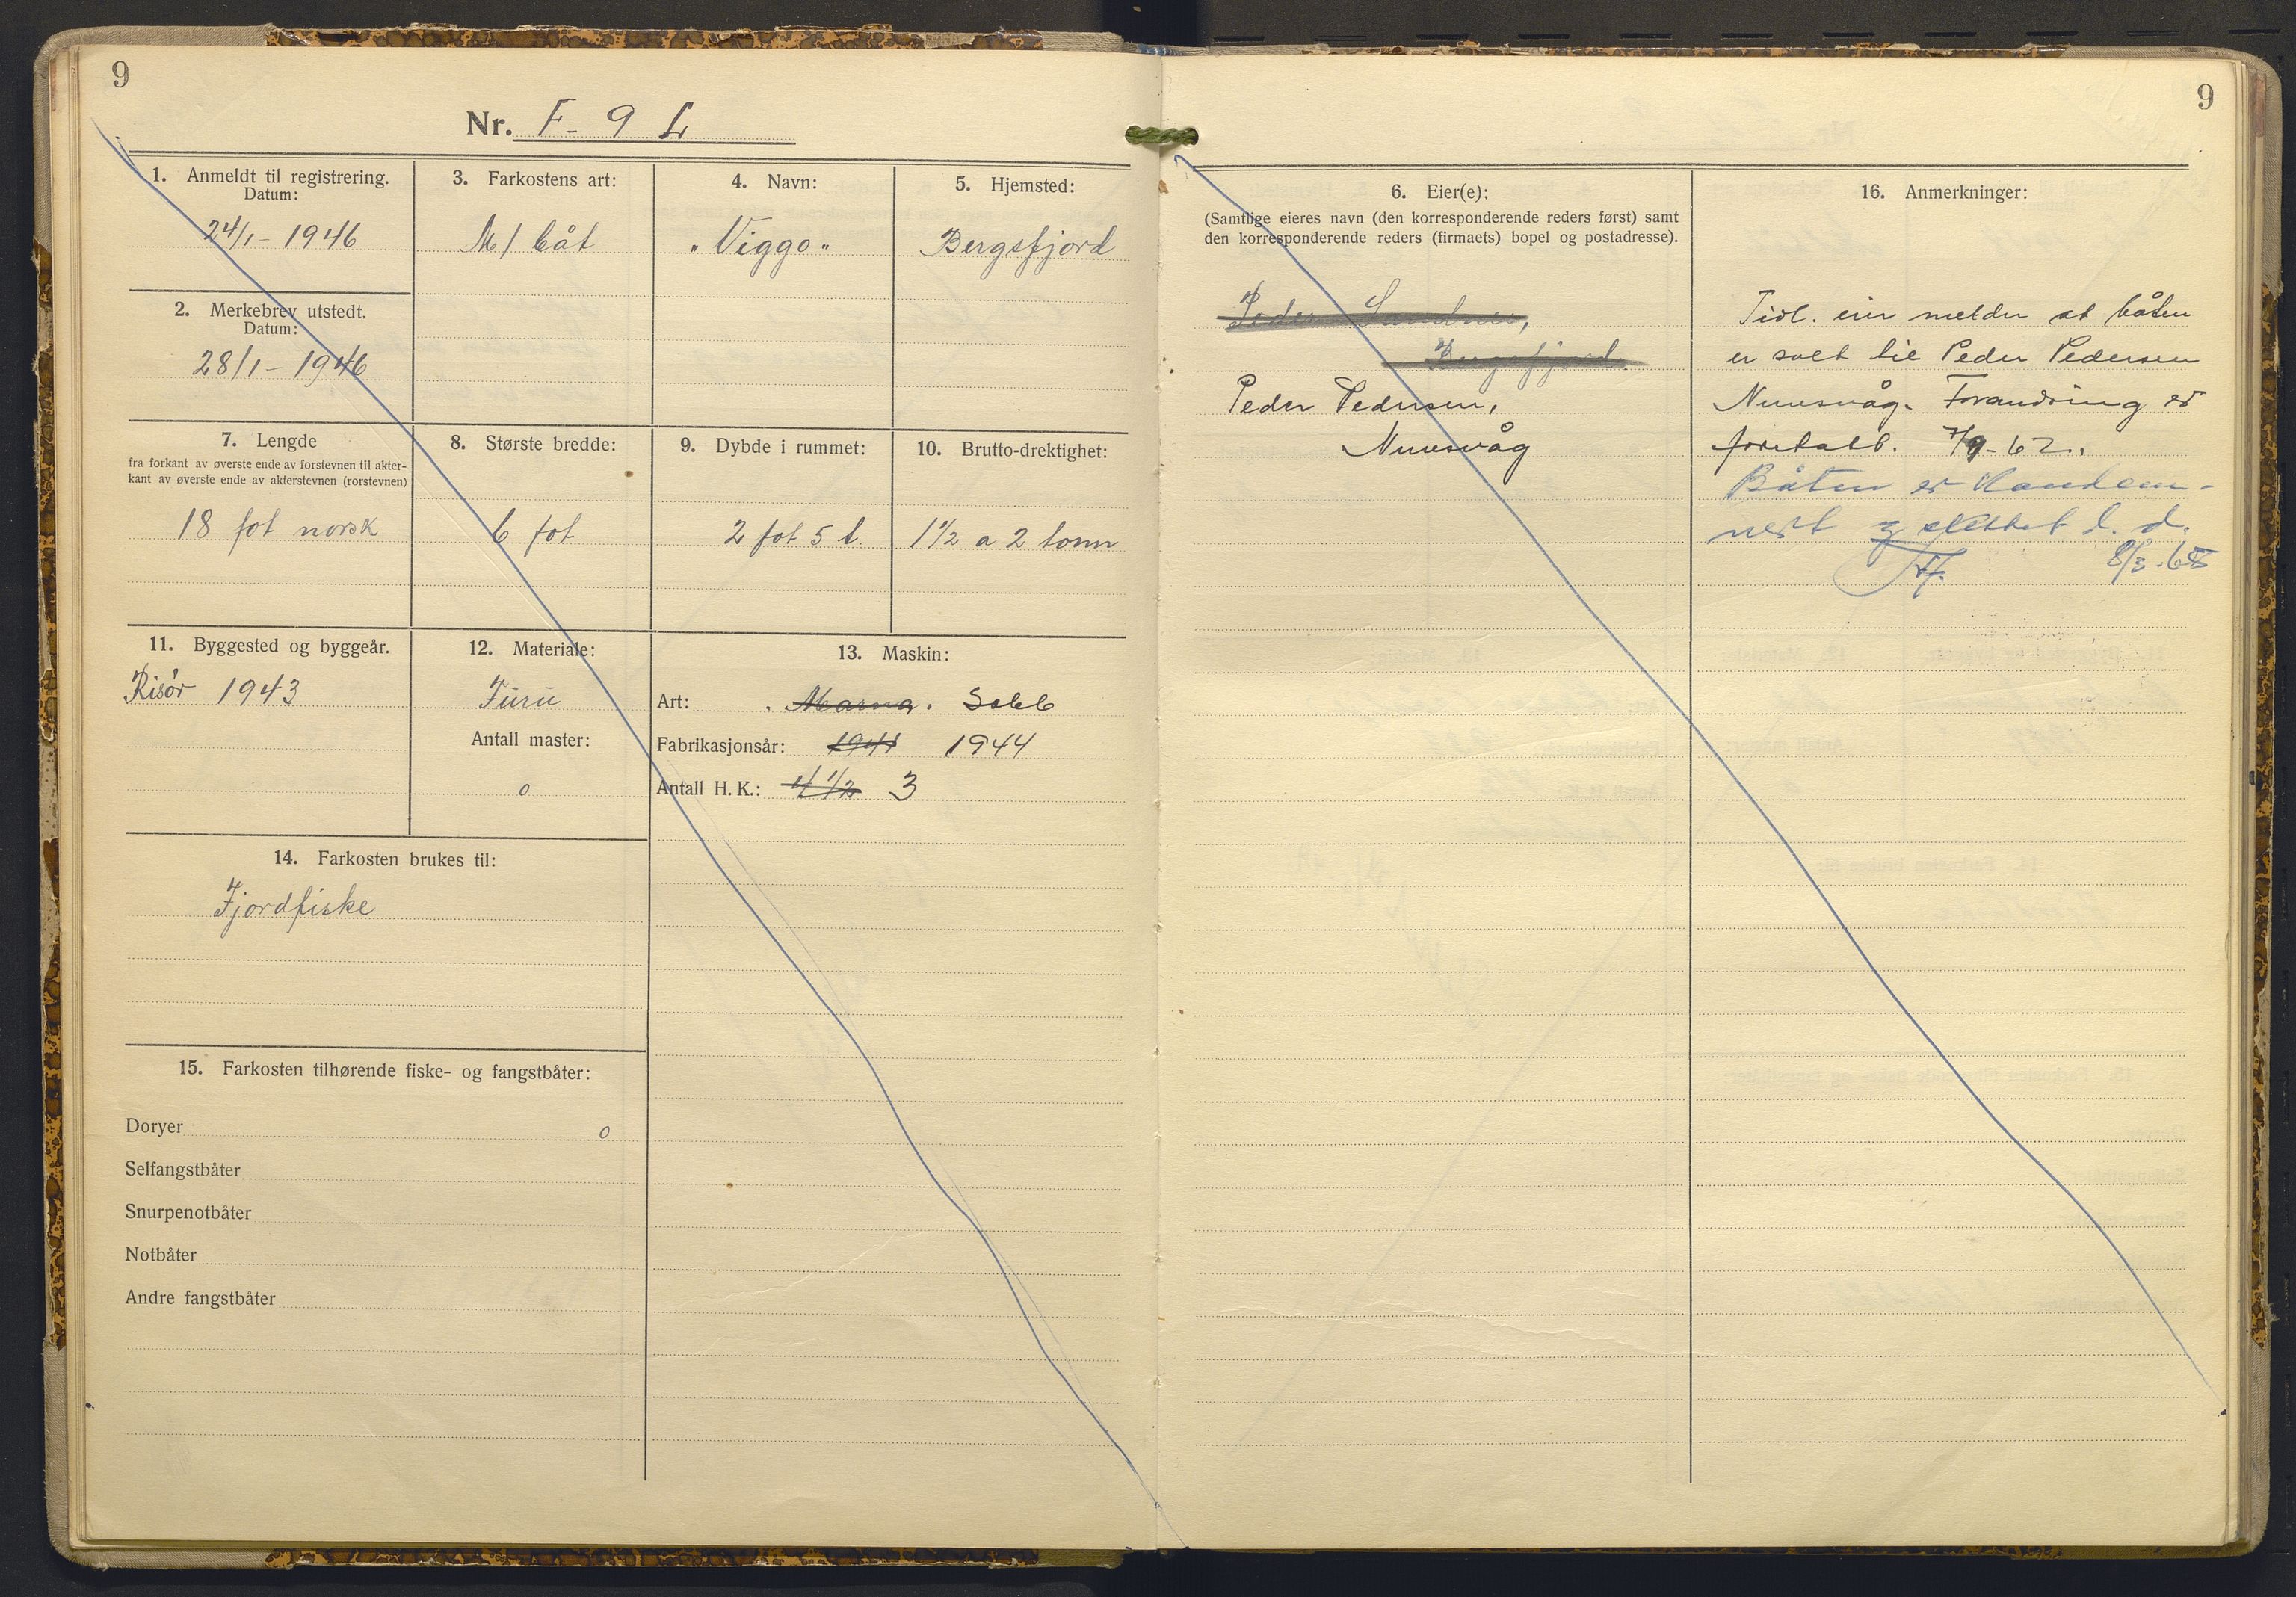 9
Nr. F- 9 L
1. Anmeldt til registrering.
Datum:
24/1 - 1946
2. Merkebrev utstedt.
Datum:
28/1 - 1946
3. Farkostens art:
M/ båt
4. Navn:
"Viggo"
5. Hjemsted:
Bergsfjord
7. Lengde
fra forkant av øverste ende av forstevnen til akter-
kant av øverste ende av akterstevnen (rorstevnen)
18 fot norsk
8. Største bredde:
6 fot
9. Dybde i rummet:
2 fot 5 t.
10. Brutto-drektighet:
1 1/2 a 2 tonn
11. Byggested og byggeår.
Risør 1943
12. Materiale:
Furu
Antall master:
0
13. Maskin:
Art: Marna. Sabb
Fabrikasjonsår: 1941 1944
Antall H. K.: 4 1/2 3
14. Farkosten brukes til:
Fjordfiske
15. Farkosten tilhørende fiske- og fangstbåter:
Doryer 0
Selfangstbåter
Snurpenotbåter
Notbåter
Andre fangstbåter
9
6. Eier(e):
(Samtlige eieres navn (den korresponderende reders først) samt
den korresponderende reders (firmaets) bopel og postadresse).
Peder
Bergsfjord.
Peder Pedersen,
Nuusvåg
16. Anmerkninger:
Tidl. eier melder at båten
er solt til Peder Pedersen
Nuusvåg. Forandring er
foretatt. 7/9-62.
Båten er Kondem-
nert og slettet d. d.
8/3.68